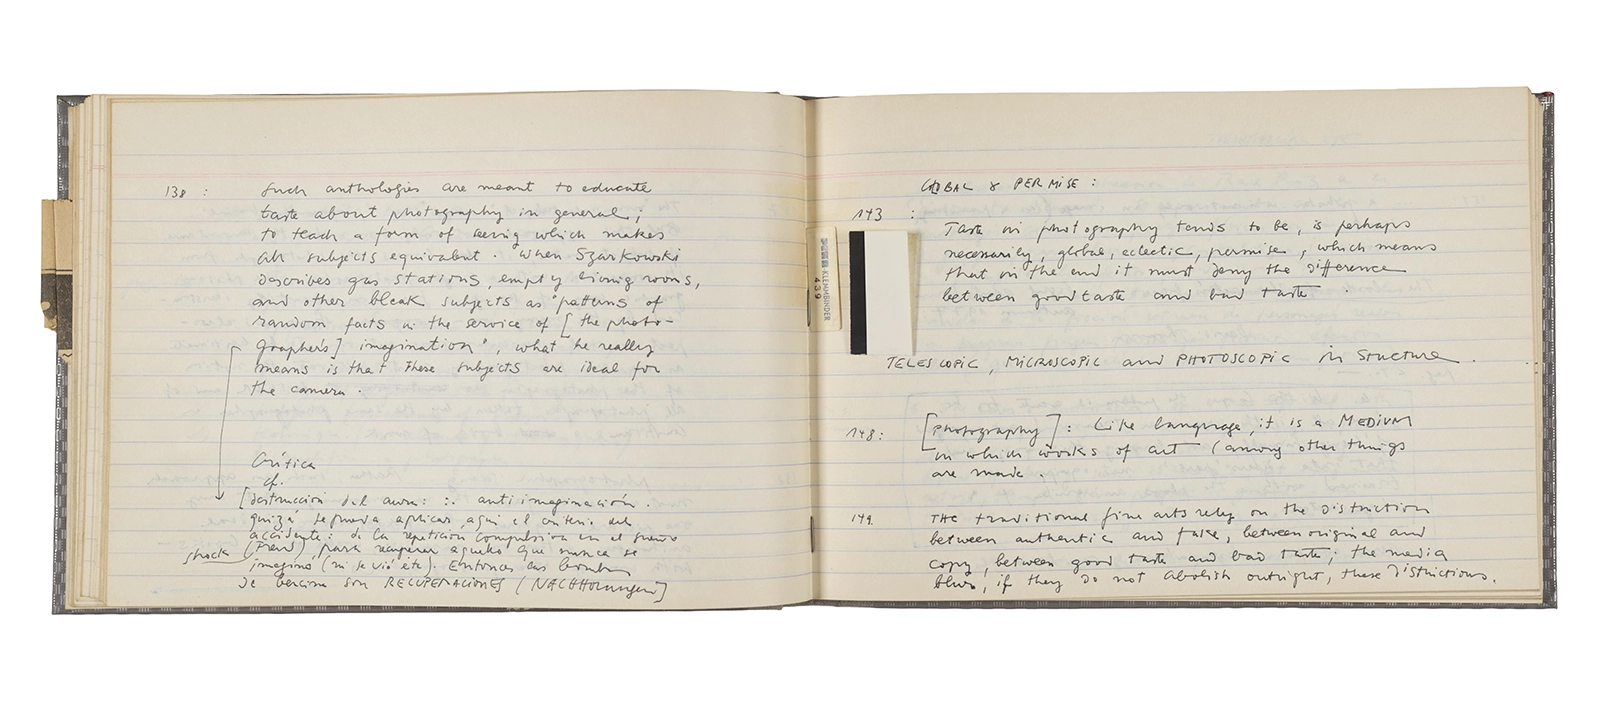 138 : Such anthologies are meant to educate
taste about photography in general;
to teach a form of seeing which makes
all subjects equivalent. When Szarkowski
describes gas stations, empty living rooms,
and other bleak subjects as "patterns of
random facts in the service of [the photo-
grapher's] imagination", what he really
means is that these subjects are ideal for
the camera.
Crítica
cf.
[destrucción del aura: :. anti imaginación.
quizá se pueda aplicar aquí el criterio del
accidente: de la repetición compulsiva en el sueño
shock (Freud), para recuperar aquello que nunca se
imaginó (ni se vió etc). Entonces las bombas
de son RECUPERACIONES (NACHHOLUNGEN)]
GLOBAL & PERMISE :
143 :
Taste in photography tends to be, is perhaps
necessarily, global, eclectic, permise, which means
that in the end it must deny the difference
between good taste and bad taste.
KLEMMBINDER
439
TELESCOPIC, MICROSCOPIC and PHOTOSCOPIC in Structure.
148: [photography]: Like language, it is a MEDIUM
in which works of art (among other things
are made.
149. THE traditional fine arts rely on the distinction
between authentic and fake, between original and
copy, between good taste and bad taste; the media
blur, if they do not abolish outright, these distinctions.